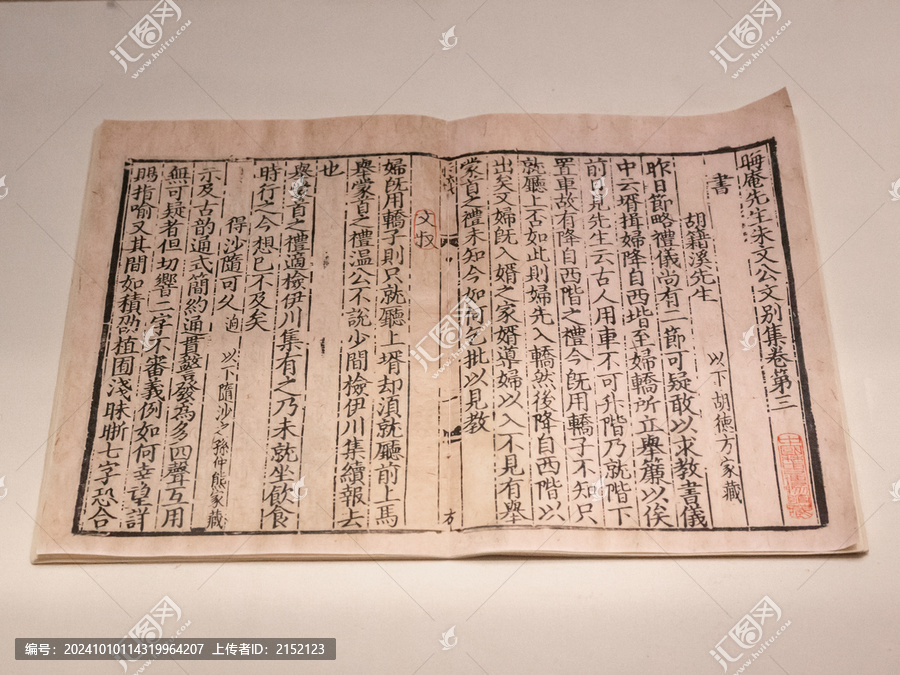 晦庵先生朱文公文別集卷第三
書
胡籍溪先生
以下胡德方家藏
昨日節略禮儀尚有二節可疑敢以求教書儀
中云壻揖婦降自西堦至婦轎所立舉簾以俟
前見先生云古人用車不可升階乃就階下
置車故有降自西階之禮今旣用轎子不知只
就廳上否如此則婦先入轎然後降自西階以
出矣又婦旣入婿之家婿導婦以入不見有舉
蒙首之禮未知今如何乞批以見教
文叔
方
婦旣用轎子則只就廳上壻却湏就廳前上馬
舉蒙首之禮溫公不說少間檢伊川集續報去
也
舉蒙首之禮適檢伊川集有之乃未就坐飲食
時行之今想已不及矣
得沙隨可久
迥
以下隨沙之孫仲熊家藏
示及古韵通式簡約通貫警發為多四聲互用
無可疑者但切響二字不審義例如何幸望詳
賜指喻又其間如積植囿淺昧斷七字恐合
汇图网
www.huitu.com
编号：20241010114319964207 上传者ID：2152123